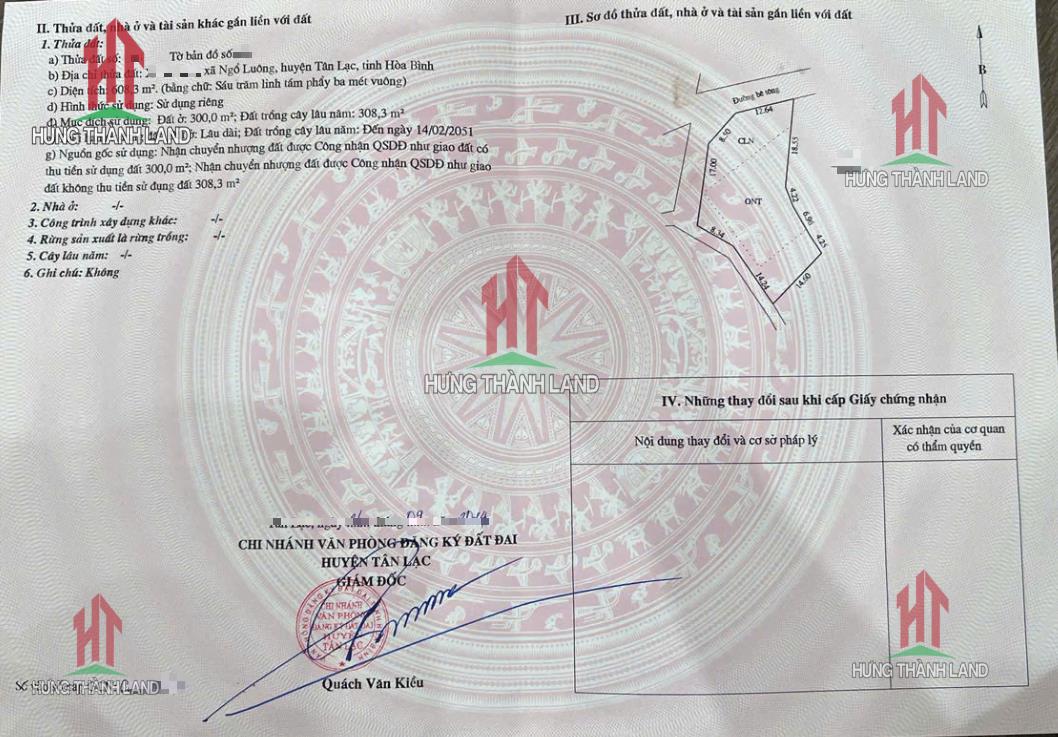 II. Thửa đất, nhà ở và tài sản khác gắn liền với đất
1. Thửa đất:
a) Thửa đất số: Tờ bản đồ số
b) Địa chỉ thửa đất: xã Ngổ Luông, huyện Tân Lạc, tỉnh Hòa Bình
c) Diện tích: 608,3 m². (bằng chữ: Sáu trăm linh tám phẩy ba mét vuông)
d) Hình thức sử dụng: Sử dụng riêng
đ) Mục đích sử dụng: Đất ở: 300,0 m²; Đất trồng cây lâu năm: 308,3 m²
Lâu dài; Đất trồng cây lâu năm: Đến ngày 14/02/2051
g) Nguồn gốc sử dụng: Nhận chuyển nhượng đất được Công nhận QSDĐ như giao đất có
thu tiền sử dụng đất 300,0 m²; Nhận chuyển nhượng đất được Công nhận QSDĐ như giao
đất không thu tiền sử dụng đất 308,3 m²
2. Nhà ở: -/-
3. Công trình xây dựng khác: -/-
4. Rừng sản xuất là rừng trồng: -/-
5. Cây lâu năm: -/-
6. Ghi chú: Không
CHI NHÁNH VĂN PHÒNG ĐĂNG KÝ ĐẤT ĐAI
HUYỆN TÂN LẠC
GIÁM ĐỐC
CHI NHÁNH
VĂN PHÒNG
ĐĂNG KÝ ĐẤT ĐAI
HUYỆN
TÂN LẠC
Quách Văn Kiều
III. Sơ đồ thửa đất, nhà ở và tài sản gắn liền với đất
B
Đường bê tông
12.64
8.50
CLN
18.55
17.00
ONT
4.22
6.96
4.25
8.34
14.24
14.60
IV. Những thay đổi sau khi cấp Giấy chứng nhận
Nội dung thay đổi và cơ sở pháp lý
Xác nhận của cơ quan
có thẩm quyền
HT
HƯNG THÀNH LAND
HT
HƯNG THÀNH LAND
HT
HƯNG THÀNH LAND
HT
HƯNG THÀNH LAND
HT
HƯNG THÀNH LAND